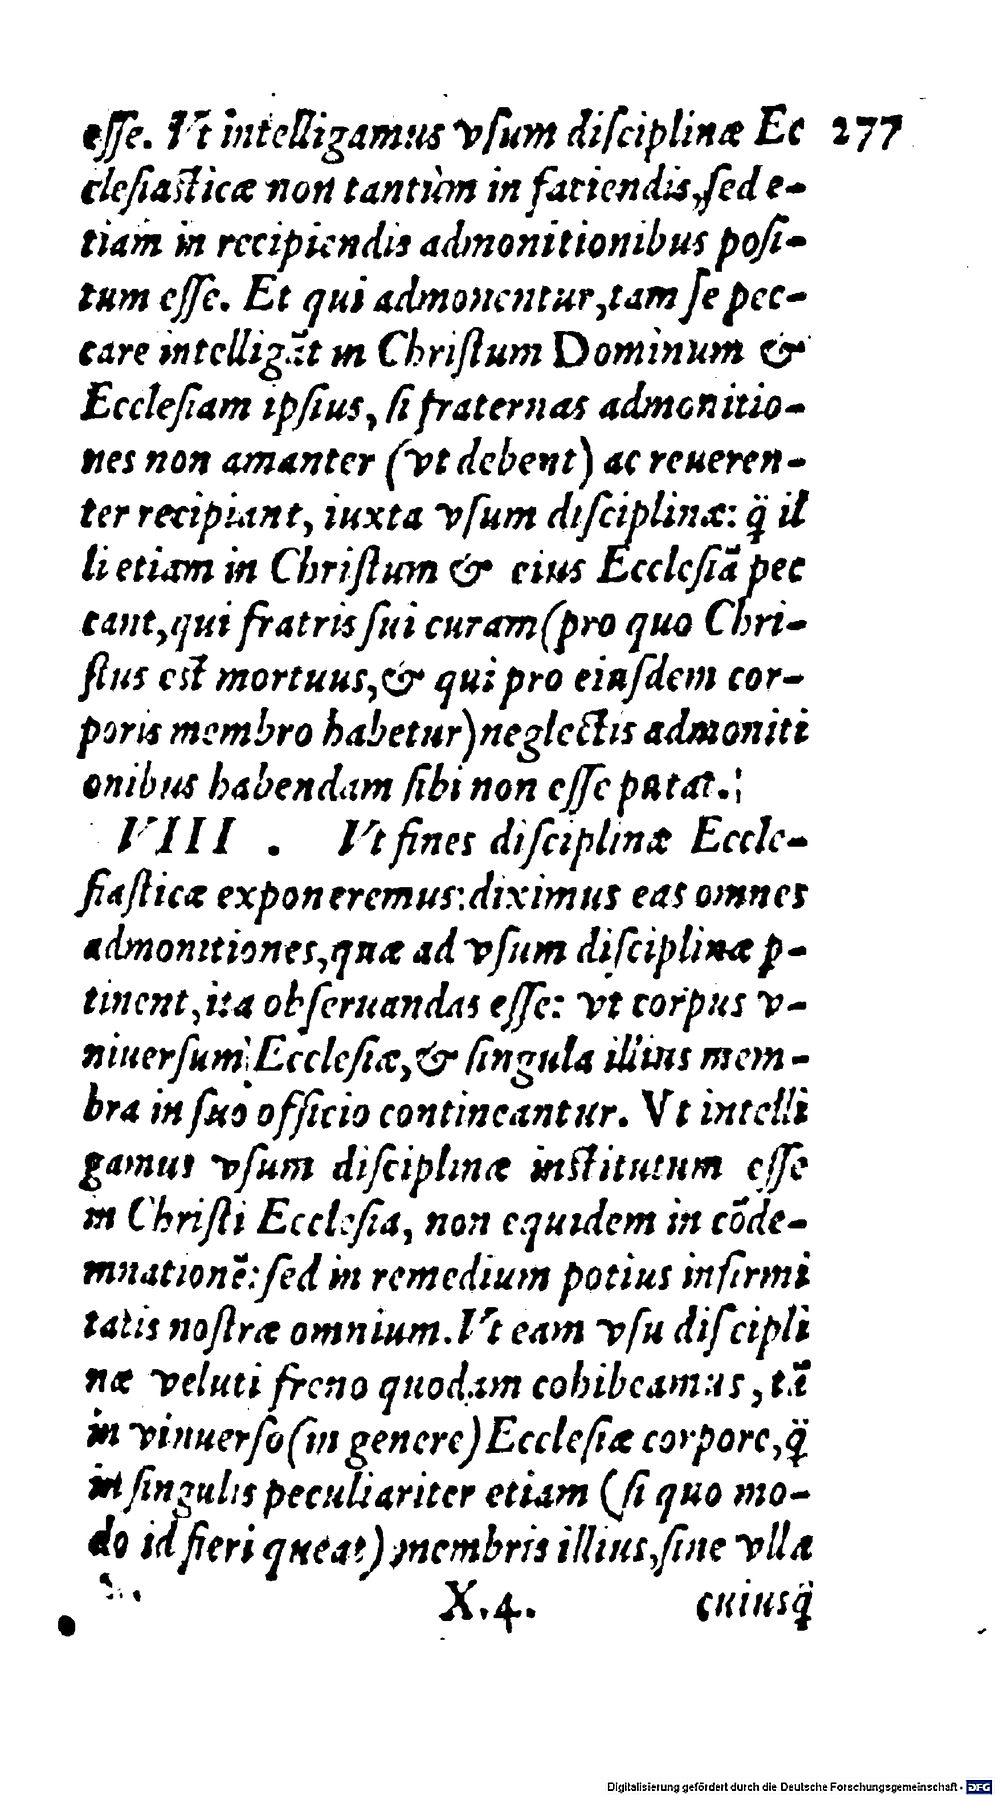 esse. Vt intelligamus vsum disciplinæ Ec 277
clesiasticæ non tantùm in faciendis, sed e-
tiam in recipiendis admonitionibus posi-
tum esse. Et qui admonentur, tam se pec-
care intelligāt in Christum Dominum &
Ecclesiam ipsius, si fraternas admonitio-
nes non amanter (vt debent) ac reueren-
ter recipiant, iuxta vsum disciplinæ: q̄ il
li etiam in Christum & eius Ecclesiā pec
cant, qui fratris sui curam (pro quo Chri-
stus est mortuus, & qui pro eiusdem cor-
poris membro habetur) neglectis admoniti
onibus habendam sibi non esse putat.
VIII. Vt fines disciplinæ Eccle-
siasticæ exponeremus: diximus eas omnes
admonitiones, quæ ad vsum disciplinæ p-
tinent, ita obseruandas esse: vt corpus v-
niuersum Ecclesiæ, & singula illius mem-
bra in suo officio contineantur. Vt intelli
gamus vsum disciplinæ institutum esse
in Christi Ecclesia, non equidem in cōde-
mnationē: sed in remedium potius infirmi
tatis nostræ omnium. Vt eam vsu discipli
næ veluti freno quodam cohibeamus, tā
in vinuerso (in genere) Ecclesiæ corpore, q̄
in singulis peculiariter etiam (si quo mo-
do id fieri queat) membris illius, sine vlla
X.4. cuiusq̄
Digitalisierung gefördert durch die Deutsche Forschungsgemeinschaft - DFG